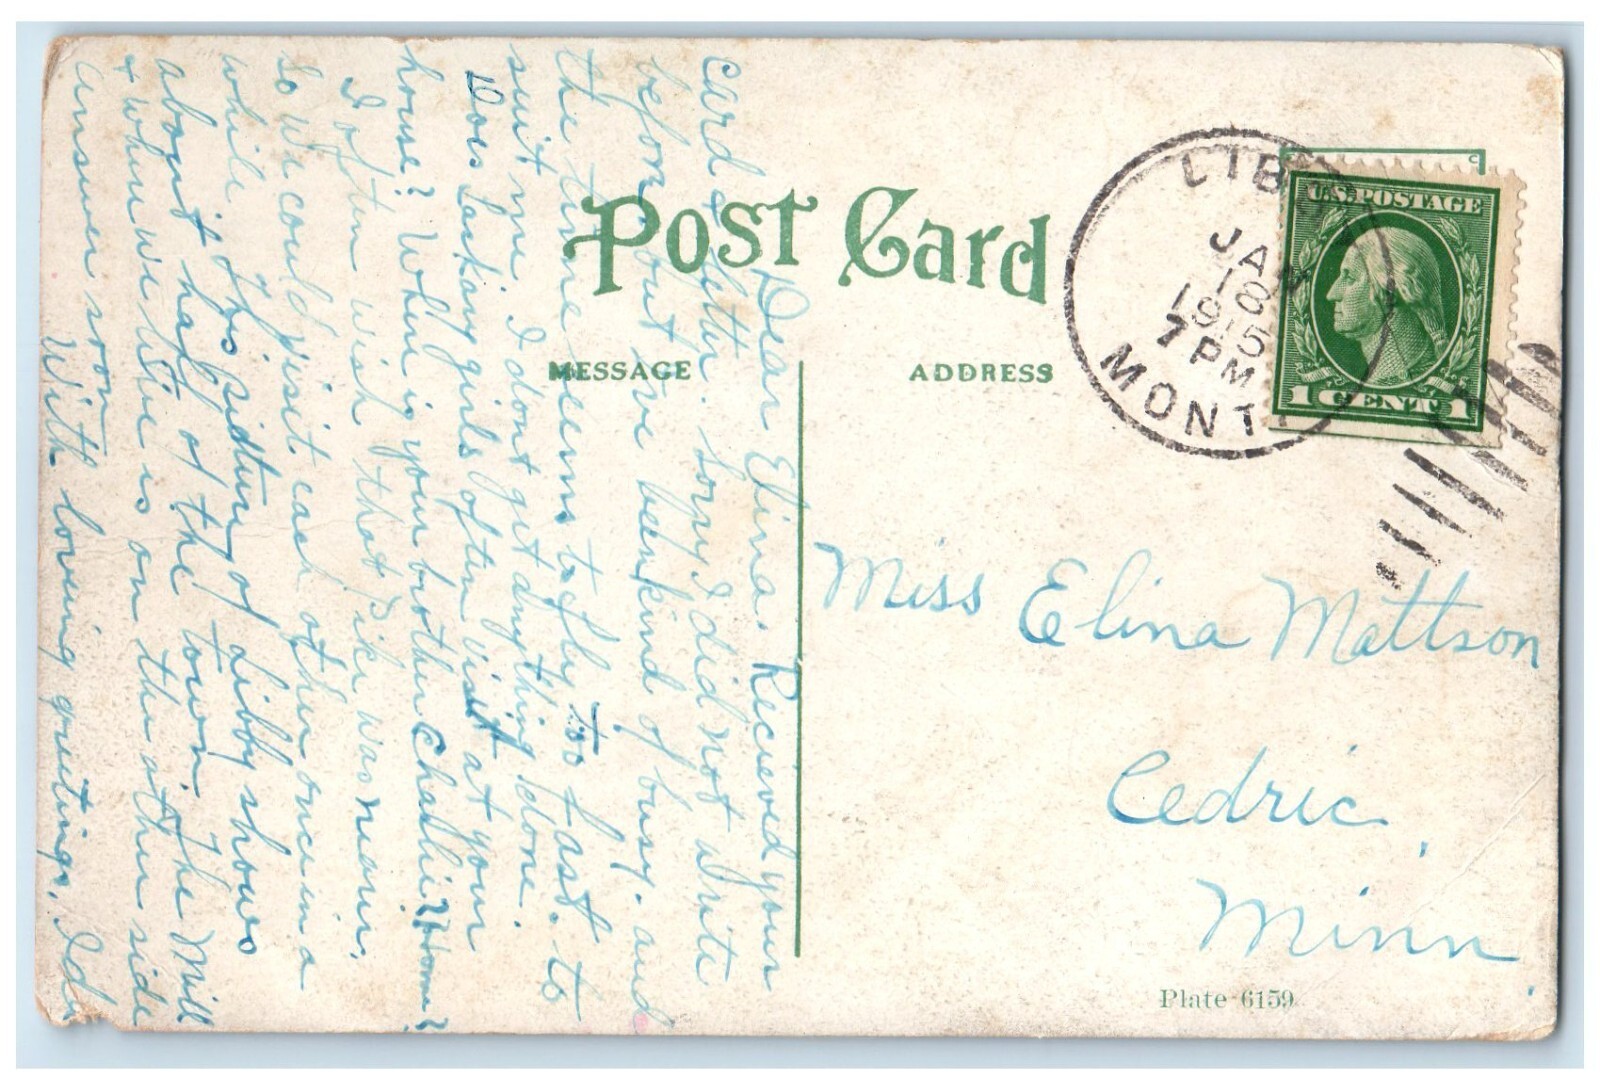 POST CARD
MESSAGE
ADDRESS
LIBBY
JAN
18
1915
7 PM
MONT.
U.S. POSTAGE
1 CENT 1
Miss Elina Mattson
Cedric,
Minn.
Plate 6159
Dear Elina. Recieved your
card & letter. Sorry I did not write
before but I've been kind of busy. and
the time seems to fly too fast. to
suit me. I dont get anything done.
Does Laskary girls often visit at your
house? When is your brother Chalie Home?
I often wish that Pike was nearer.
So we could visit each other once in a
while. This pidture of Libby shows
about half of the town. The Mill
+ where we live is on the other side
Answer soon
With loving greetings. Ida